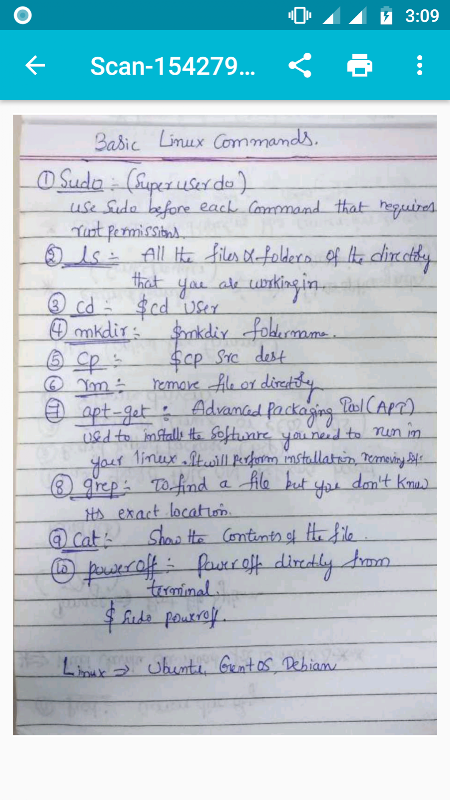 3:09
Scan-154279...
Basic Linux Commands.
① Sudo :- (Superuser do)
use Sudo before each Command that requires
root permissions.
② ls :- All the files & folders of the directory
that you are working in.
③ cd :- $cd user
④ mkdir :- $mkdir foldername.
⑤ cp :- $cp src dest
⑥ rm :- remove file or directory.
⑦ apt-get :- Advanced Packaging Tool (APT)
used to installs the software you need to run in
your linux. It will perform installation, removing
⑧ grep :- To find a file but you don't know
its exact location.
⑨ cat :- Show the contents of the file.
⑩ poweroff :- Power off directly from
terminal.
$ Sudo poweroff.
Linux ⇒ Ubuntu, GentOS, Debian